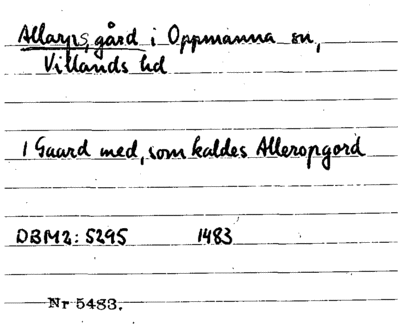 Allarps gård i Oppmanna sn,
Villands hd
1 Gaard med, som kaldes Alleropgord
DBM2: 5295 1483
Nr 5483.